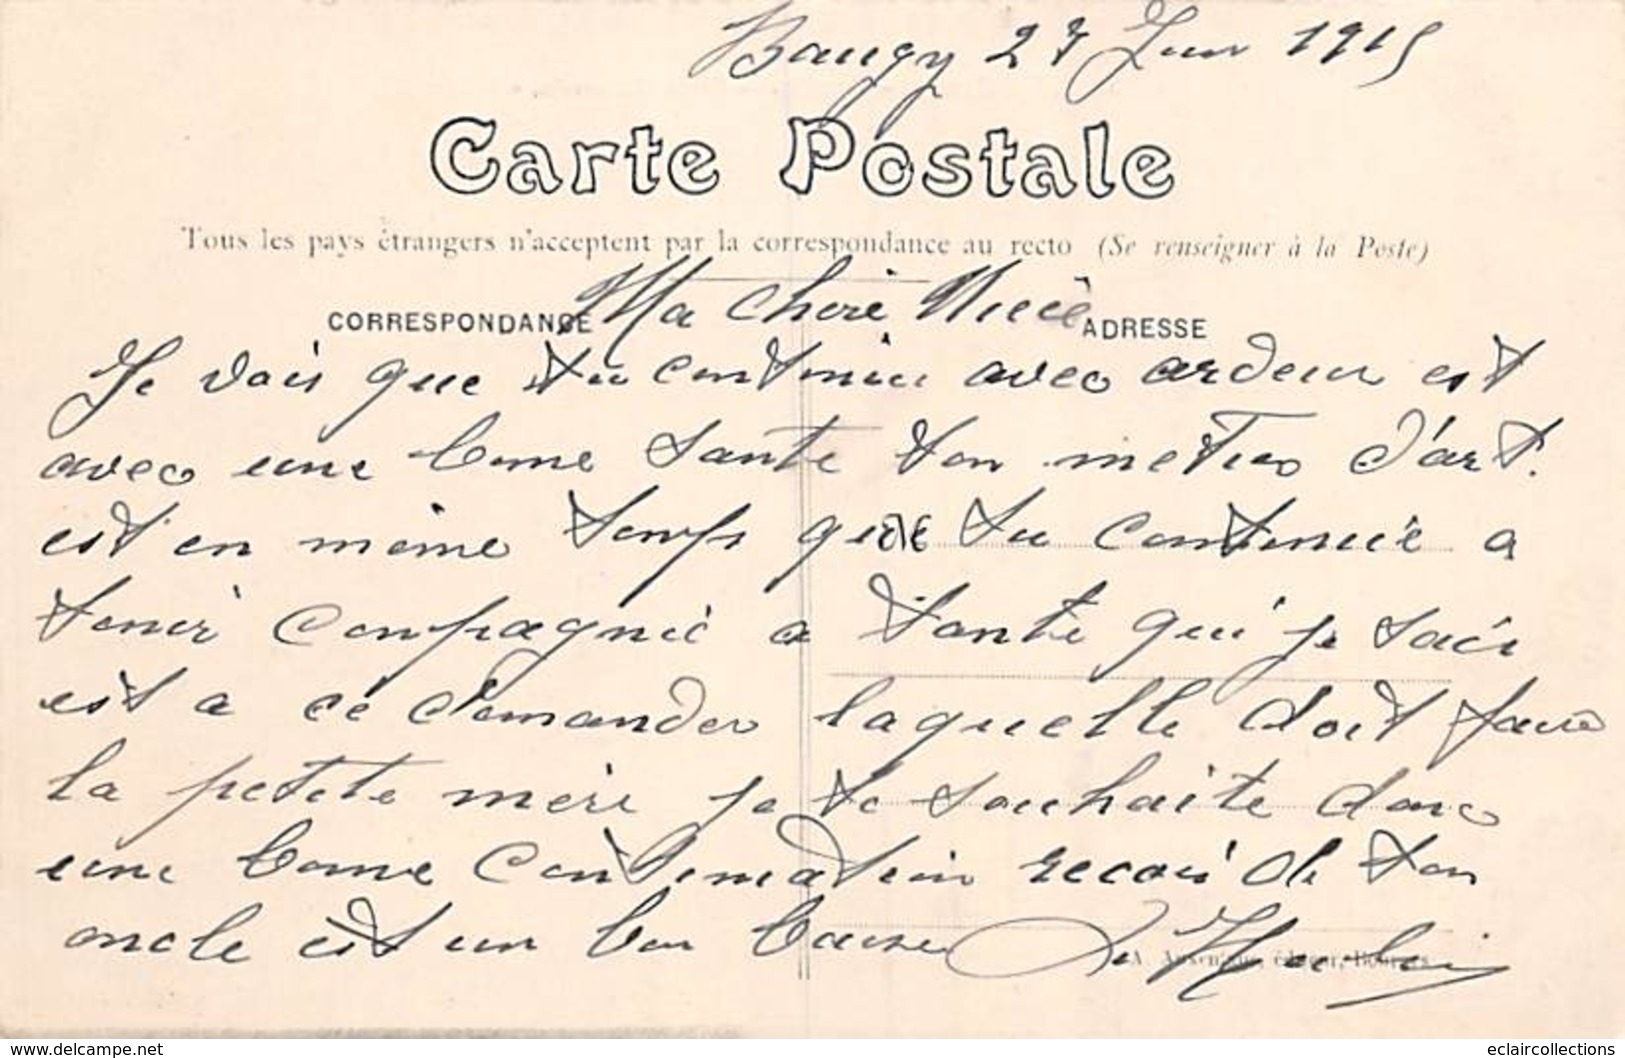 Baugy 27 Juin 1915
Carte Postale
Tous les pays étrangers n'acceptent par la correspondance au recto (Se renseigner à la Poste)
CORRESPONDANCE Ma chere Niece ADRESSE
Je vois que tu continu avec ardeur est
avec une bonne santé ton metier d'art.
est en même temps que tu continue a
tenir compagnie a tante qui je sais
est a ce demander laquelle doit faire
la petite mère je te souhaite donc
une bonne continuation recois de ton
oncle est un bon baiser
A. Auxenfans, éditeur, Bourges
www.delcampe.net
eclaircollections